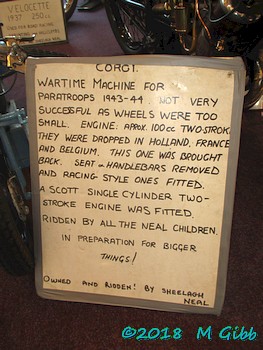 VELOCETTE
1937 250cc
CORGI.
WARTIME MACHINE FOR
PARATROOPS 1943-44. NOT VERY
SUCCESSFUL AS WHEELS WERE TOO
SMALL. ENGINE: APPROX. 100cc TWO-STROKE
THEY WERE DROPPED IN HOLLAND, FRANCE
AND BELGIUM. THIS ONE WAS BROUGHT
BACK. SEAT & HANDLEBARS REMOVED
AND RACING STYLE ONES FITTED.
A SCOTT SINGLE CYLINDER TWO-
STROKE ENGINE WAS FITTED.
RIDDEN BY ALL THE NEAL CHILDREN.
IN PREPARATION FOR BIGGER
THINGS!
OWNED AND RIDDEN! BY SHEELAGH
NEAL
©2018 M Gibb